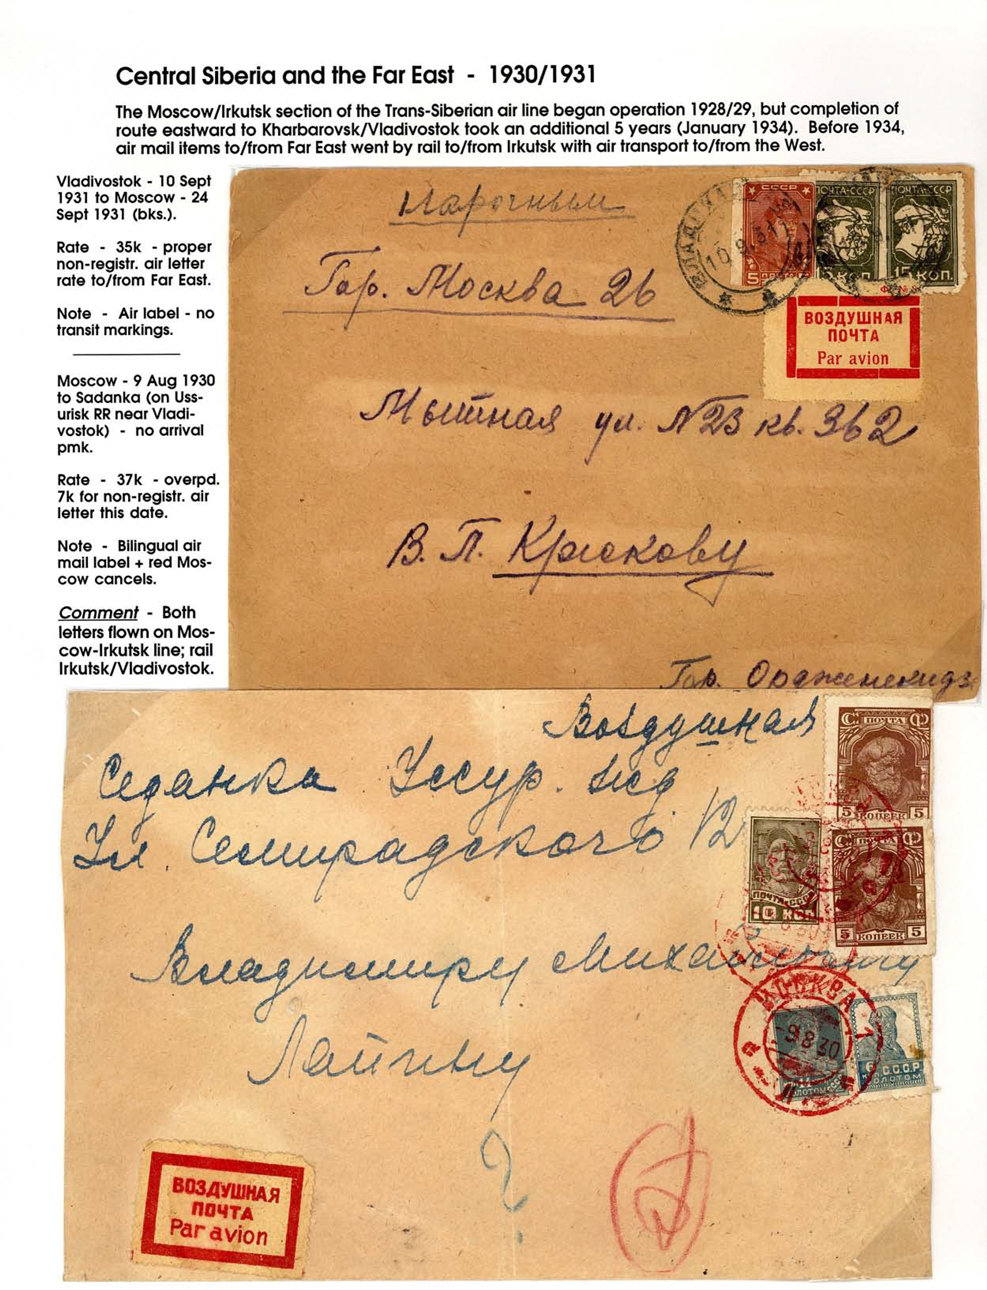 Central Siberia and the Far East - 1930/1931
The Moscow/Irkutsk section of the Trans-Siberian air line began operation 1928/29, but completion of
route eastward to Kharbarovsk/Vladivostok took an additional 5 years (January 1934). Before 1934,
air mail items to/from Far East went by rail to/from Irkutsk with air transport to/from the West.
Vladivostok - 10 Sept
1931 to Moscow - 24
Sept 1931 (bks.).
Rate - 35k - proper
non-registr. air letter
rate to/from Far East.
Note - Air label - no
transit markings.
Moscow - 9 Aug 1930
to Sadanka (on Uss-
urisk RR near Vladi-
vostok) - no arrival
pmk.
Rate - 37k - overpd.
7k for non-registr. air
letter this date.
Note - Bilingual air
mail label + red Mos-
cow cancels.
Comment - Both
letters flown on Mos-
cow-Irkutsk line; rail
Irkutsk/Vladivostok.
Нарочным
СССР
ПОЧТА-СССР
ПОЧТА-СССР
15 КОП.
Гор. Москва 26
ВОЗДУШНАЯ
ПОЧТА
Par avion
Мытная ул. №23 кв. 362
В. П. Краскову
Гор. Орджоникидз
Воздушная
ПОЧТА
5 КОПЕЕК 5
Седанка Уссур. жд
Ул. Семирадского 12
ПОЧТА-СССР
10 КОП
5 КОПЕЕК 5
Владимиру Михайловичу
Лапину
МОСКВА
9 8 30
СССР
ЗОЛОТОМ
ВОЗДУШНАЯ
ПОЧТА
Par avion